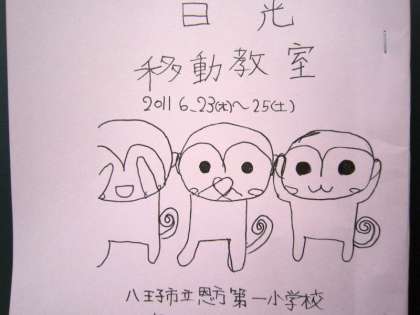 日光
移動教室
2011 6.23(木)~25(土)
八王子市立恩方第一小学校